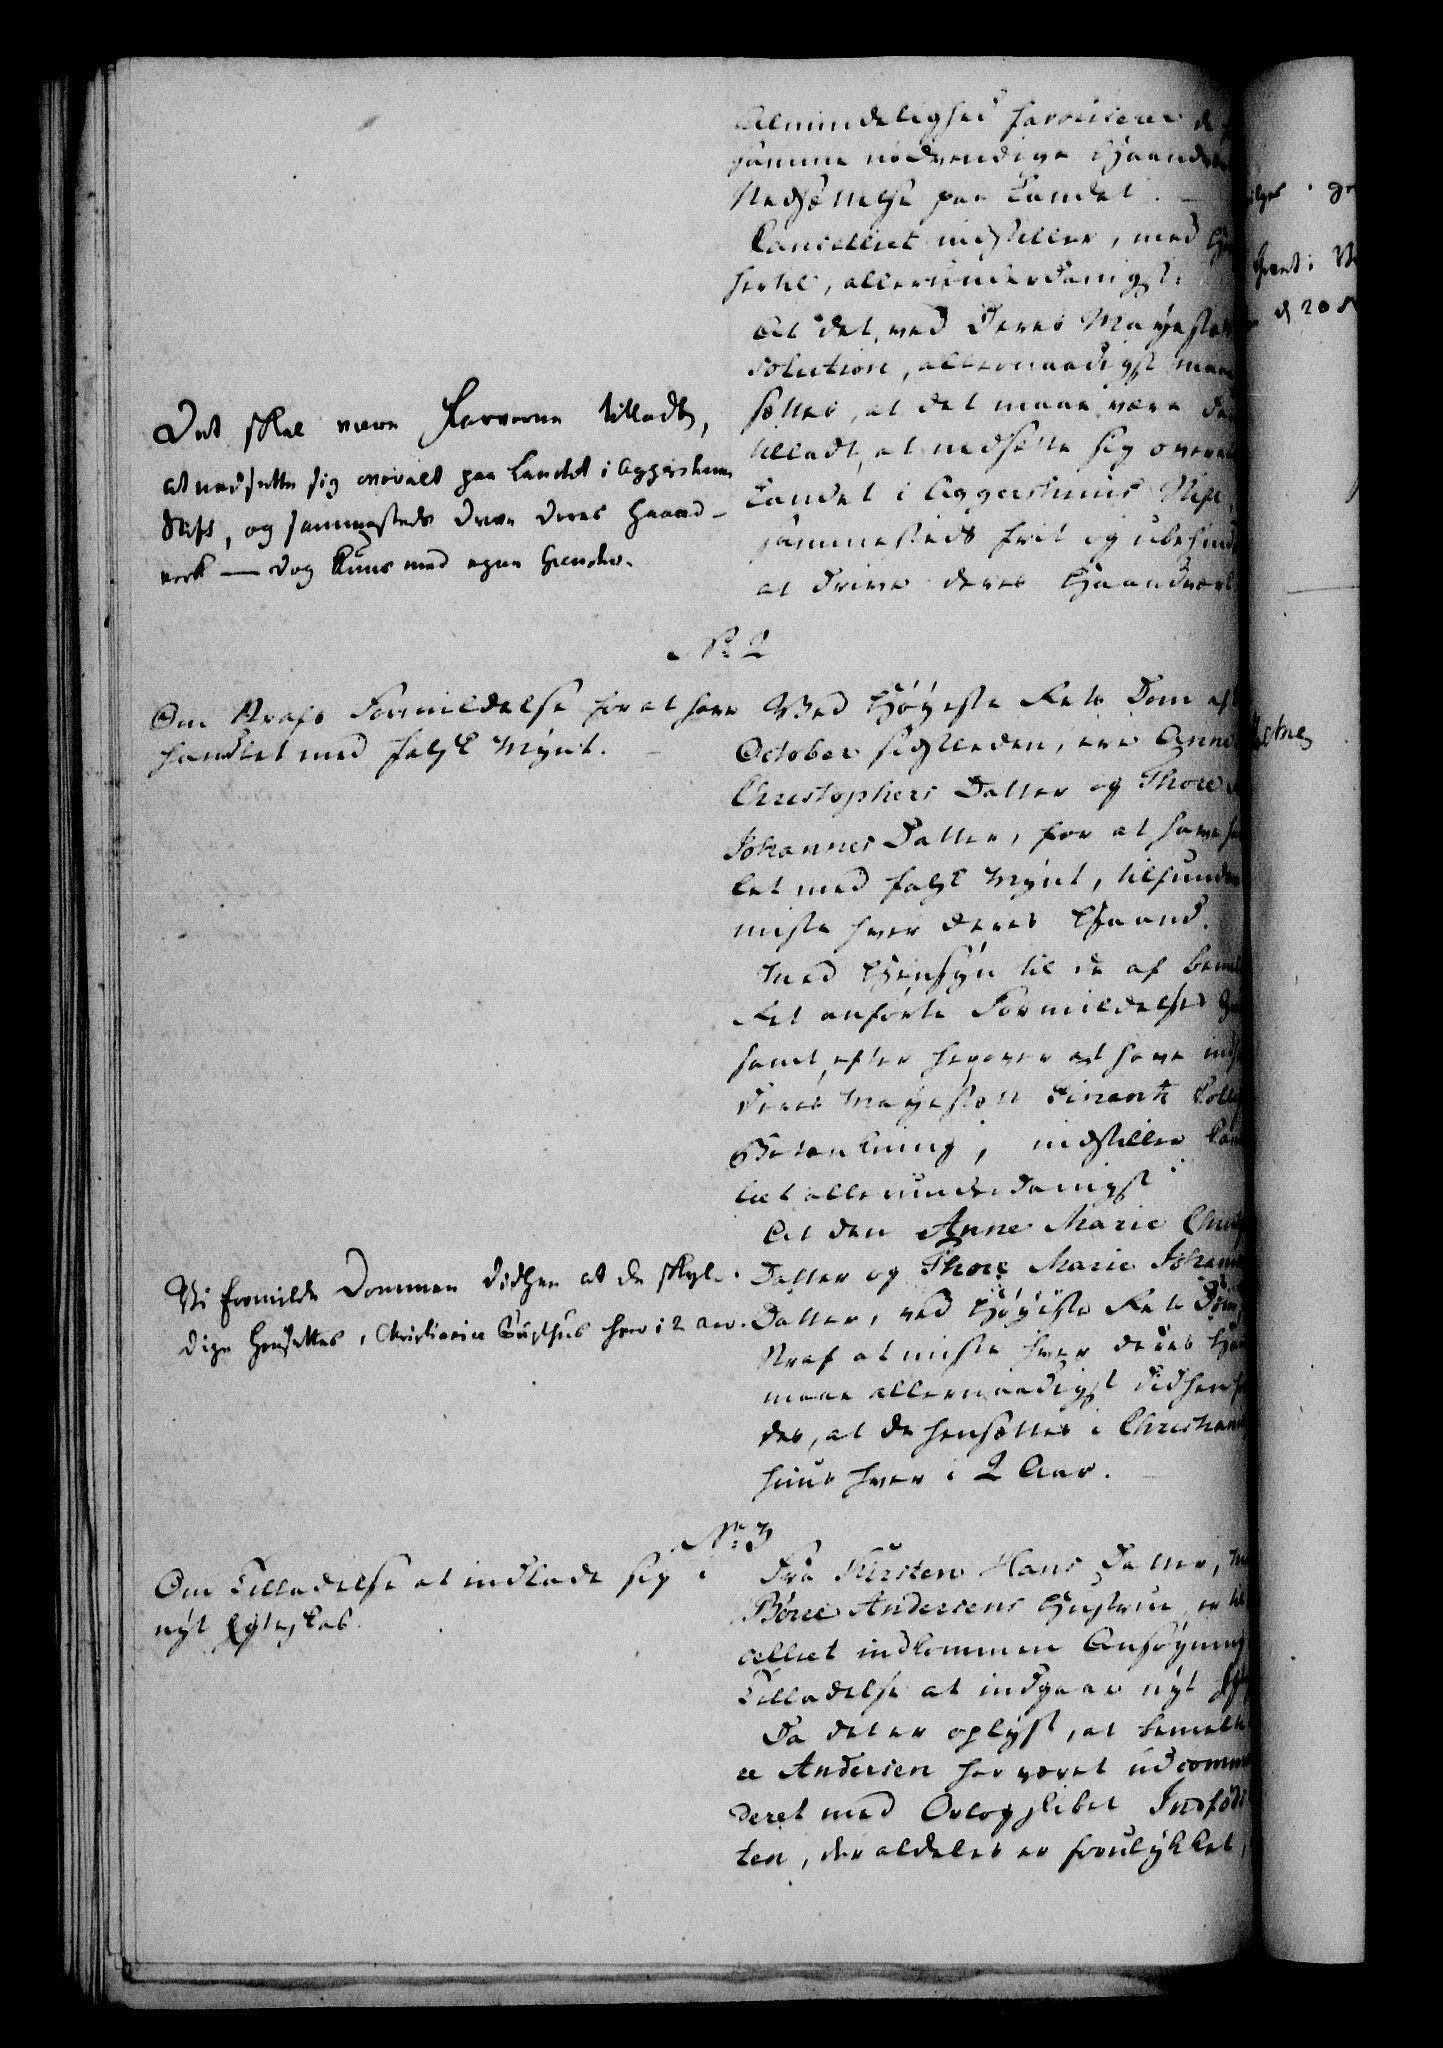 Almindelighed favoriserer de
samme nødvendige Haandvær
Nedsættelse paa Landet.
Cancelliet indstiller, med H
hertil, allerunderdanigst:
At det, ved Deres Majestæts
solution, allernaadigst maa
sættes, at det maae være
tilladt, at nedsætte sig overalt
Landet i Aggershuus Stift,
sammesteds frit og ubehind
at drive deres Haandværk.
Det skal være Farverne tilladt,
at nedsætte sig overalt paa Landet i Aggershuus
Stift, og sammesteds drive deres Haand-
verk — dog kuns med egne Hænder.
No 2
Om Straffs Formildelse for at have
handlet med falsk Mynt.
Ved Høyeste Rets Dom af
October sidstleden, ere Anne
Christophers Datter og Thore
Johannes Datter, for at have ha
let med falsk Mynt, tilfunden
miste hver deres Haand.
Med Hensyn til de af bemel
Ret anførte Formildelses G
samt, efter herover at have indh
Deres Majestæts Finantz Colle
Betænkning, indstiller Can
liet allerunderdanigst
At den Anne Marie Christ
Datter og Thore Marie Johann
Datter, ved Høyeste Rets Dom,
Straf at miste hver deres Ha
maae allernaadigst didhen f
des, at de hensættes i Christian
huus hver i 2 Aar.
Vi formilde Dommen didhen at de skyl-
dige hensættes i Christianiæ Tugthus hver i 2 Aar.
No 3
Om Tilladelse at indlade sig i
nyt Egteskab.
Fra Kirsten Hans Datter,
Börre Andersens Hustrue, er til
celliet indkommen Ansøgning
Tilladelse at indgaae nyt Egt
Da det er oplyst, at bemelte
re Andersen har været udcomman
deret med Orlogskibet Indföds
ten, der aldeles er forulykket,